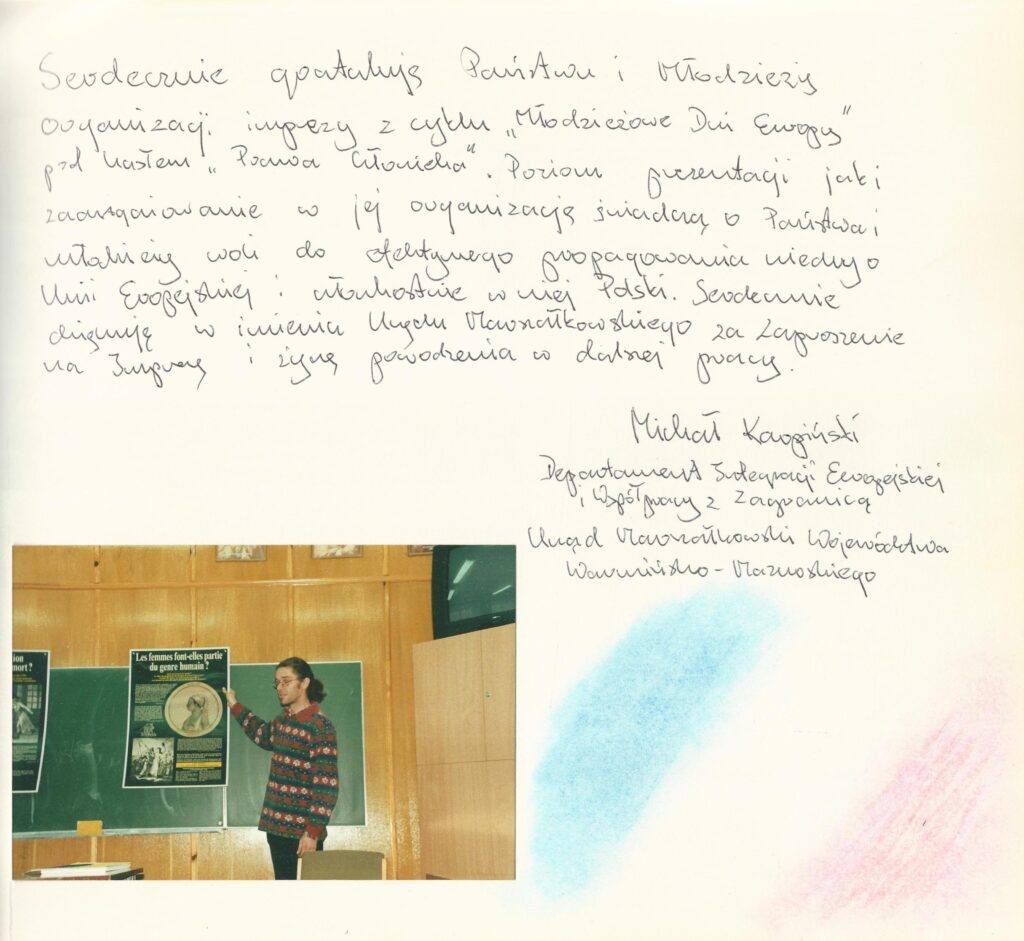 Serdecznie gratuluję Państwu i Młodzieży
organizacji imprezy z cyklu „Młodzieżowe Dni Europy"
pod hasłem „Prawa Człowieka". Poziom prezentacji jak i
zaangażowanie w jej organizację świadczą o Państwa i
młodzieży woli do efektywnego propagowania wiedzy o
Unii Europejskiej i członkostwie w niej Polski. Serdecznie
dziękuję w imieniu Urzędu Marszałkowskiego za zaproszenie
na imprezę i życzę powodzenia w dalszej pracy.
Michał Karpiński
Departament Integracji Europejskiej
i Współpracy z Zagranicą
Urząd Marszałkowski Województwa
Warmińsko-Mazurskiego
ion
mort ?
Les femmes font-elles partie
du genre humain ?